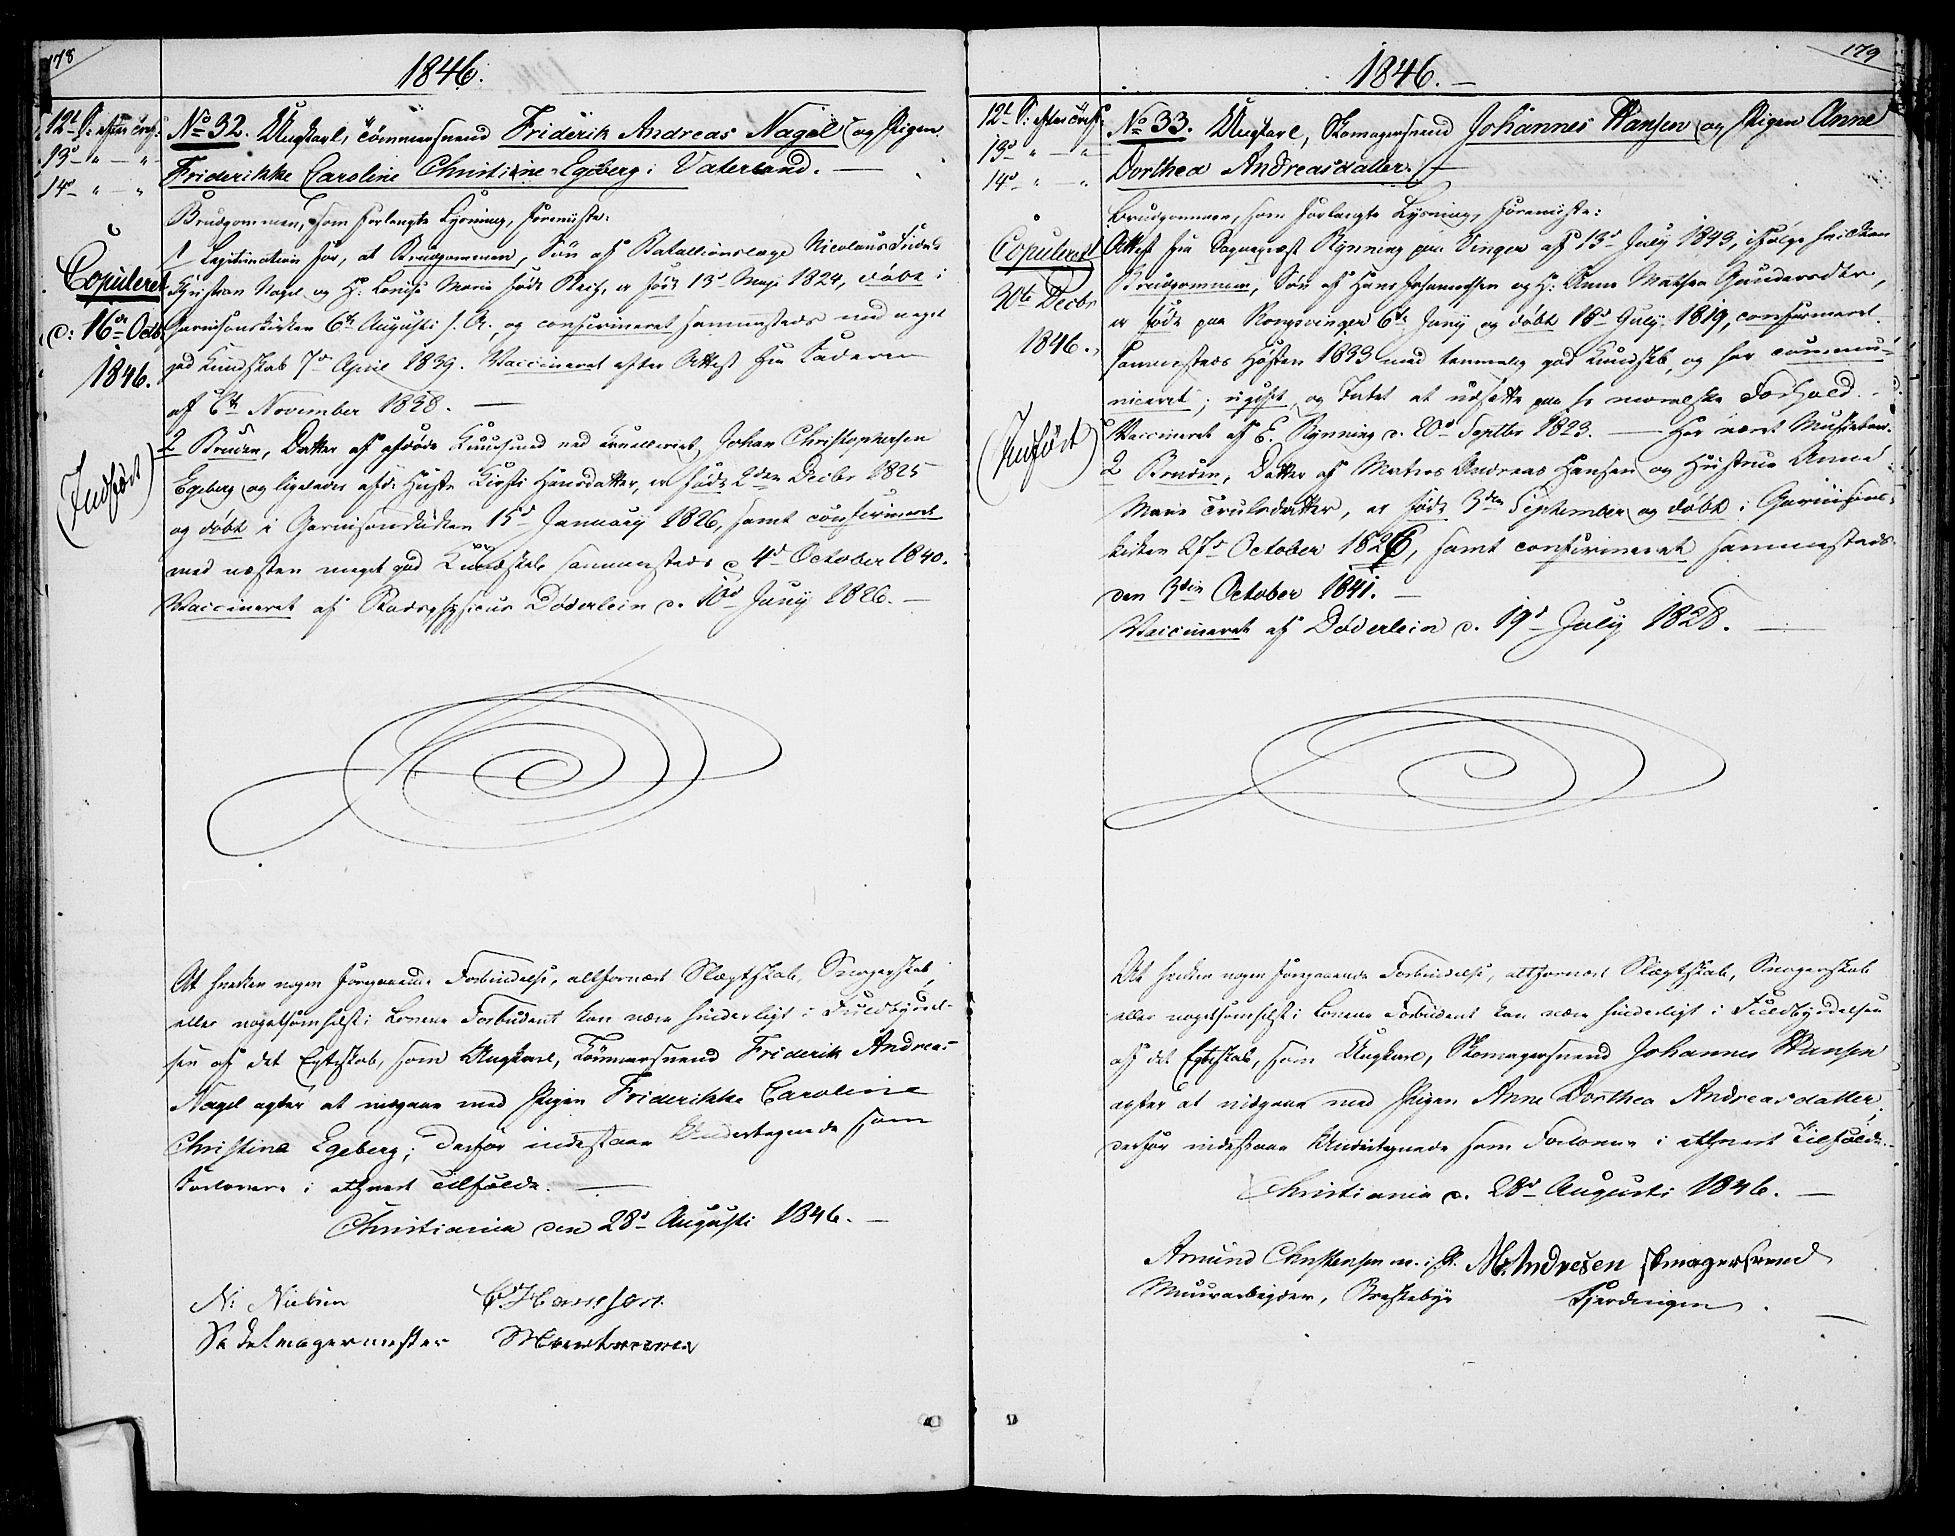 178
1846.
12t S: efter Tref:
13d " — "
14d " — "
No 32. Ungkarl, Tømmersvend Friderik Andreas Nagel og Pigen
Friderikke Caroline Christine Egeberg i Vaterland. —
Brudgommen, som forlangte Lysning, foreviste:
1 Legitimation for, at Brudgommen, Søn af Bataillonslæge Nicolaus
Christian Nagel og H: Lovise Marie født er født 13d Maji 1824, døbt i
Garnisonskirken 6te Augusti s. A., og confirmeret sammesteds med meget
god Kundskab 7de April 1839. Vaccineret efter Attest fra Faderen
af 6te November 1838. —
2 Bruden, Datter af afdøde Johan Christophersen
Egeberg og ligeledes afd: Hustr Kirsti Hansdatter, er født 2den Decbr 1825
og døbt i Garnisonskirken 15d January 1826, samt confirmeret
med næsten meget god Kundskab sammesteds d. 4d October 1840.
Vaccineret af Stadsphysicus Døderlein d. 10d Juny 1826. —
Copuleret
d: 16de Octb
1846.
(Indført)
At hverken nogen foregaaende Forbindelse, altfornært Slægtskab, Svogerskab
eller nogetsomhelst i Lovene Forbudent kan være hinderligt i Fuldbyrdel-
sen af det Egteskab, som Ungkarl, Tømmersvend Friderik Andreas
Nagel agter at indgaae med Pigen Friderikke Caroline
Christine Egeberg; derfor indestaae Undertegnede som
Forlovere i ethvert Tilfælde. —
Christiania den 28d Augusti 1846. —
N: Nielsen
Sadelmagermester
179
1846. —
12t S: efter Tref:
13d " — "
14d " — "
No 33. Ungkarl, Skomagersvend Johannes Hansen og Pigen Anne
Dorthea Andreasdatter. —
Brudgommen, som forlangte Lysning, foreviste:
Attest fra Sognepræst Rynning paa Vinger af 13d July 1843, ifølge hvilken
Brudgommen, Søn af Hans Johannesen og H: Anne Mathea Gundersdtr,
er født paa Kongsvinger 6te Juny og døbt 18d July 1819, confirmeret
sammesteds Høsten 1833 med temmelig god Kundskab, og har commu-
niceret; ugift, og Intet at udsætte paa hs moralske Forhold. —
Vaccineret af E. Rynning d. 20d Septbr 1823. — Har været
2 Bruden, Datter af Matros Andreas Hansen og Hustrue Anne
Marie Trulsdatter, er født 3den September og døbt i Garnisons-
kirken 27d October 1826, samt confirmeret sammesteds
den 3die October 1841. —
Vaccineret af Døderlein d. 19d July 1828. —
Copuleret
30te Decbr
1846.
(Indført)
At hverken nogen foregaaende Forbindelse, altfornært Slægtskab, Svogerskab
eller nogetsomhelst i Lovene Forbudent kan være hinderligt i Fuldbyrdelsen
af det Egteskab, som Ungkarl, Skomagersvend Johannes Hansen
agter at indgaae med Pigen Anne Dorthea Andreasdatter,
derfor indestaae Undertegnede som Forlovere i ethvert Tilfælde. —
Christiania d. 28d Augusti 1846. —
Amund Christensen m. i P.
Muurarbeider,
M. Andresen skomagersvend
Fjerdingen. —